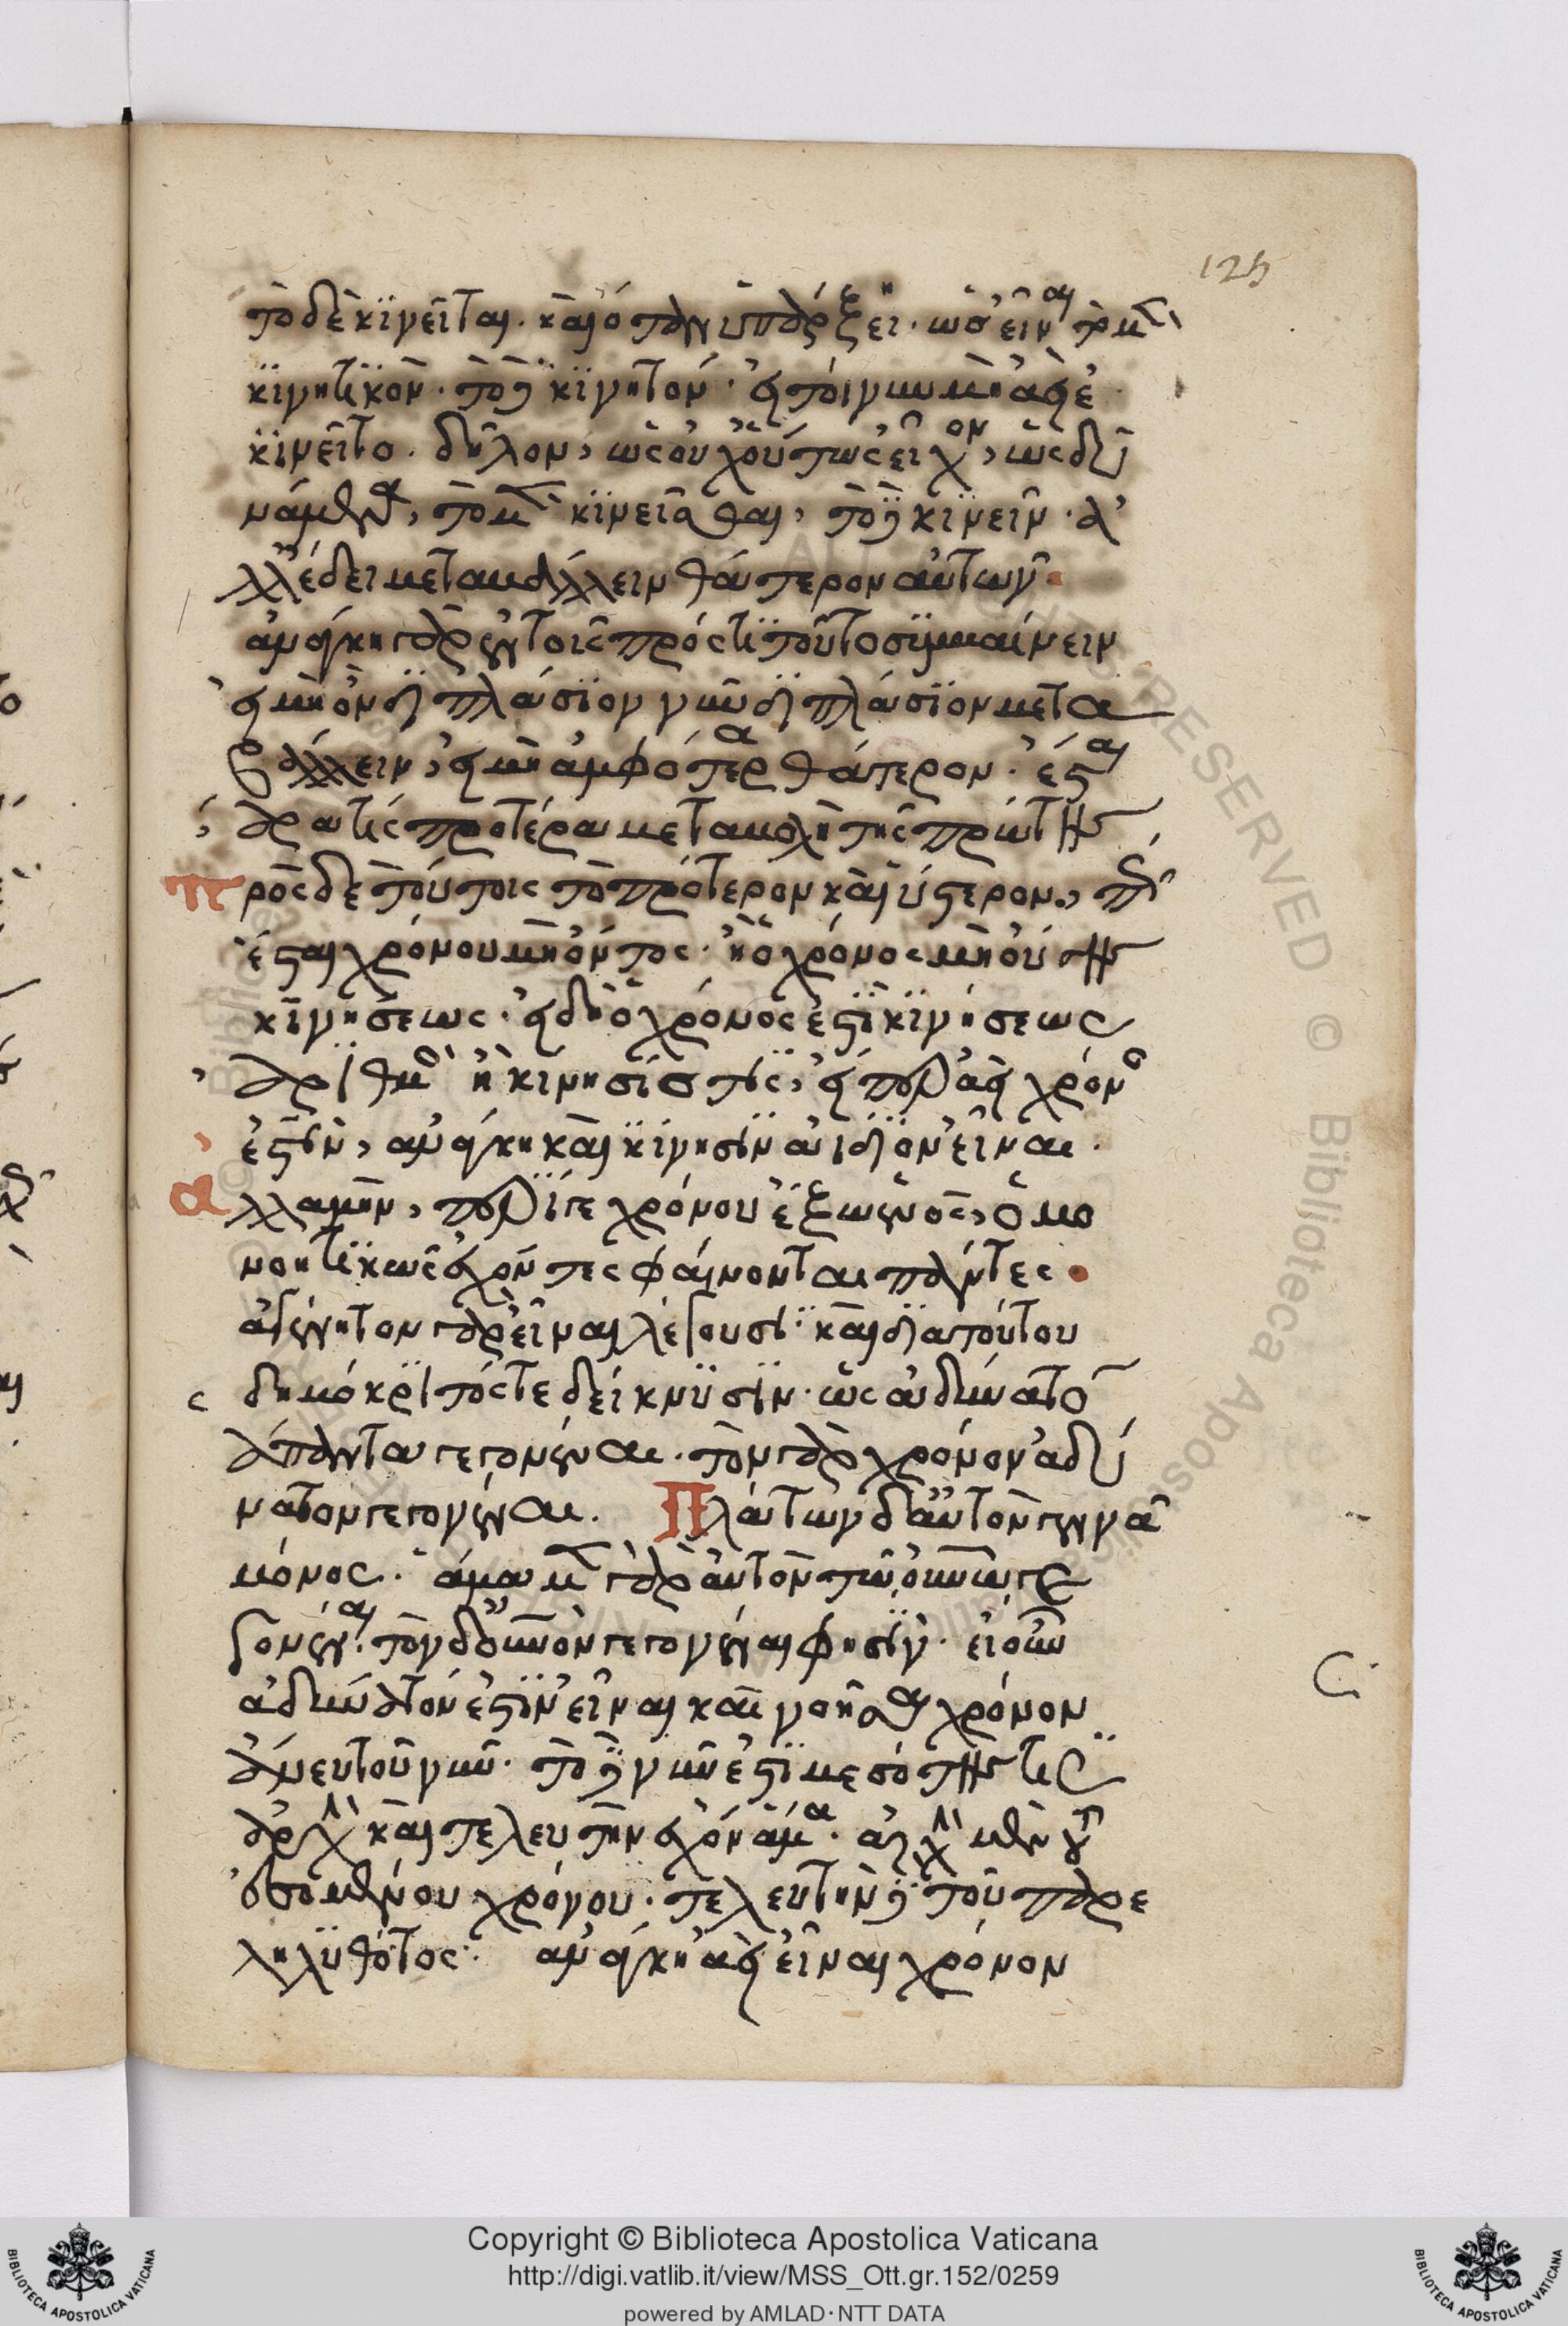 125
τὸ δὲ κϊνεῖται. καὶ ὁπόταν ὑπάρξῃ. ὡς εἶναι τὸ μὲν
κϊνητϊκὸν. τὸ δὲ κϊνητόν. εἰ τοίνυν μὴ ἀεὶ ἐ
κϊνεῖτο. δῆλον, ὡς οὐχ οὕτως εἶχον, ὡς δυ
νάμενα, τὸ μὲν κϊνεῖσθαι, τὸ δὲ κϊνεῖν. ἀ
λλ' ἔδει μεταβάλλειν θάτερον αὐτῶν.
ἀνάγκη γὰρ ἐν τοῖς πρός τϊ τοῦτο συμβαίνειν
εἰ μὴ ὂν δϊπλάσϊον νῦν δϊπλάσϊον μετα
βάλλειν, εἰ μὴ ἀμφότερα θάτερον. ἔσται
ἄρα τὶς προτέρα μεταβολὴ τῆς πρώτης
πρὸς δὲ τούτοις τὸ πρότερον καὶ ὕστερον, πῶς
ἔσται χρόνου μὴ ὄντος. ἢ ὁ χρόνος μὴ οὔσης
κϊνήσεως. εἰ δὴ ὁ χρόνος ἐστὶ κϊνήσεως
ἀρϊθμὸς ἢ κίνησίς τϊς, εἴπερ ἀεὶ χρόνος
ἐστϊν, ἀνάγκη καὶ κϊνησϊν ἀΐδϊον εἶναι.
ἀλλὰ μὴν, περί γε χρόνου ἔξω ἑνὸς, ὁμο
νοητϊκῶς ἔχοντες φαίνονται πάντες
ἀγένητον γὰρ εἶναι λέγουσϊ. καὶ δϊὰ τούτου
δημόκρϊτός τε δείκνυσϊν. ὡς ἀδύνατον
ἅπαντα γεγονέναι. τὸν γὰρ χρόνον ἀδύ
νατον γεγονέναι. Πλάτων δ' αὐτὸν γεννᾶ
μόνος. ἅμα μὲν γὰρ αὐτὸν τῷ οὐρανῷ γε
γονέναι. τὸν δ' οὐρανὸν γεγονέναι φησϊν. εἰ οὖν
ἀδύνατόν ἐστϊν εἶναι καὶ νοῆσαι χρόνον
ἄνευ τοῦ νῦν. τὸ δὲ νῦν ἐστϊ μεσότης τϊς
ἀρχὴν καὶ τελευτὴν ἔχον ἅμα. ἀρχὴν μὲν τοῦ
ἐσομένου χρόνου. τελευτὴν δὲ τοῦ παρε
ληλυθότος. ἀνάγκη ἀεὶ εἶναι χρόνον
Copyright © Biblioteca Apostolica Vaticana
http://digi.vatlib.it/view/MSS_Ott.gr.152/0259
powered by AMLAD·NTT DATA